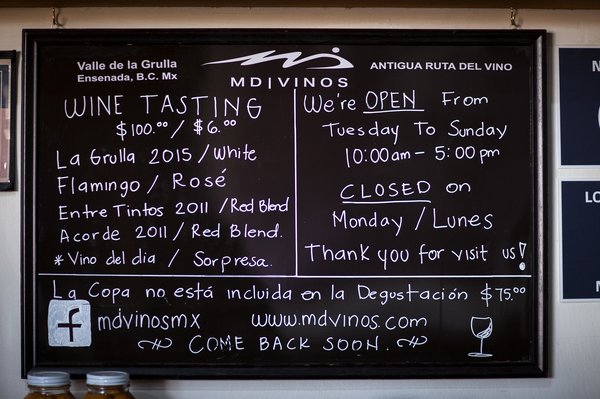 Valle de la Grulla
Ensenada, B.C. Mx
MD|VINOS
ANTIGUA RUTA DEL VINO
WINE TASTING
$100.00 / $6.00
La Grulla 2015 / White
Flamingo / Rosé
Entre Tintos 2011 / Red Blend
Acorde 2011 / Red Blend.
*Vino del dia / Sorpresa.
We're OPEN From
Tuesday To Sunday
10:00am - 5:00pm
CLOSED on
Monday / Lunes
Thank you for visit us!
La Copa no está incluida en la Degustación $75.00
f mdvinosmx www.mdvinos.com
COME BACK SOON.
N
LO